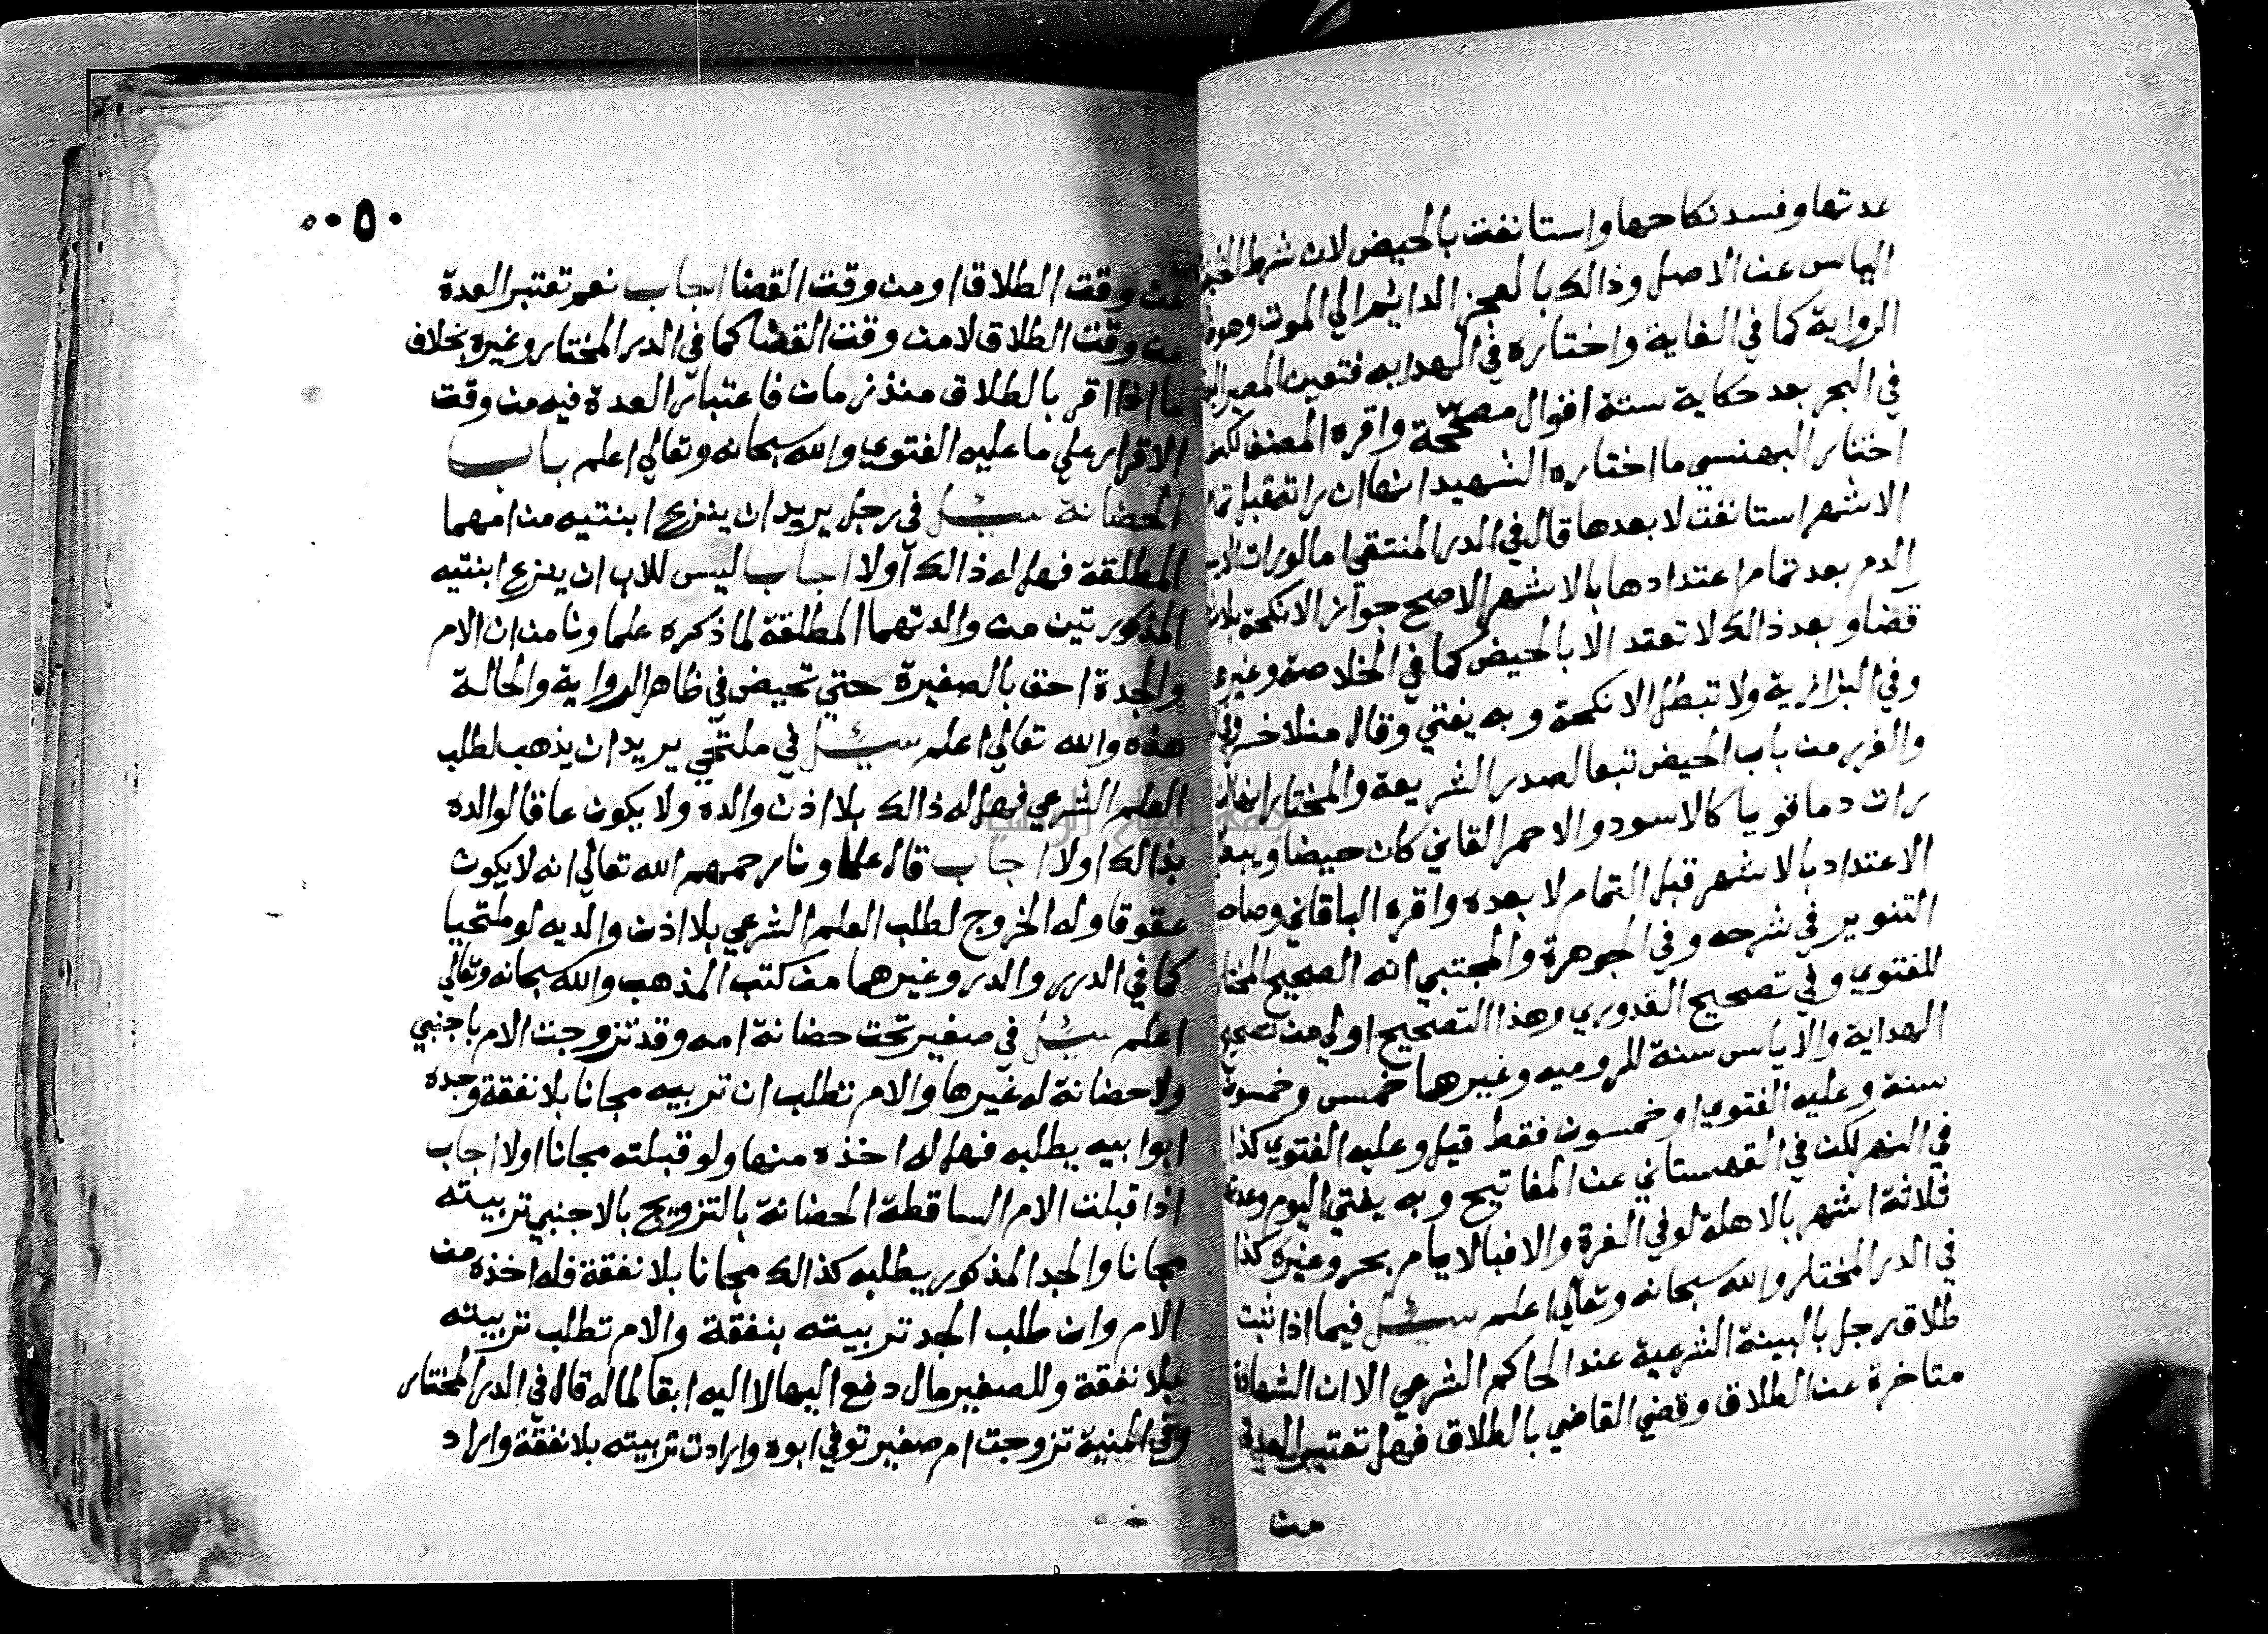 عدتها وفسد نكاحها واستانفت بالحيض لان شرط
الياس عن الاصل وذالك بالعجز الدائم الي الموت وهو
الرواية كما في الغاية واختاره في الهدايه فتعين المصير
في البحر بعد حكاية ستة اقوال مصححة واقره المصنف لكن
اختار البهنسي ما اختاره الشهيد انها ان راته قبل
الاشهر استانفت لا بعدها قال في الدر المنتقي اما لو رات
الدم بعد تمام اعتدادها بالاشهر الاصح جواز الانكحة
قضا وبعد ذالك لا تعتد الا بالحيض كما في الخلاصة وغيره
وفي البزازية ولا تبطل الانكحة وبه يفتي وقال منلا خسرو
والغرر من باب الحيض تبعا لصدر الشريعة والمختار انها
رات دما قويا كالاسود والاحمر القاني كان حيضا ويبطل
الاعتداد بالاشهر قبل التمام لا بعده واقره الباقاني
التنوير في شرحه وفي الجوهرة والمجتبي انه الصحيح المختار
للفتوي وفي تصحيح القدوري وهذا التصحيح اولي من تصحيح
الهداية والاياس سنة للروميه وغيرها خمس وخمسون
سنة وعليه الفتوي او خمسون فقط قيل وعليه الفتوي كذا
في النهر لكن في القهستاني عن المفاتيح وبه يفتي اليوم وعدتها
ثلاثة اشهر بالاهلة لو في الغرة والا فبالايام بحر وغيره كذا
في الدر المختار والله سبحانه وتعالي اعلم سئل فيما اذا ثبت
طلاق رجل بالبينة الشرعية عند الحاكم الشرعي الا ان الشهادة
متاخرة عن الطلاق وقضي القاضي بالطلاق فهل تعتبر العدة
من
٠٥٠
من وقت الطلاق او من وقت القضا اجاب نعم تعتبر العدة
من وقت الطلاق لا من وقت القضا كما في الدر المختار وغيره بخلاف
ما اذا اقر بالطلاق منذ زمان فاعتبار العدة فيه من وقت
الاقرار علي ما عليه الفتوي والله سبحانه وتعالي اعلم باب
الحضانة سئل في رجل يريد ان ينزع ابنتيه من امهما
المطلقة فهل له ذالك أولا اجاب ليس للاب ان ينزع ابنتيه
المذكورتين من والدتهما المطلقة لما ذكره علماونا من ان الام
والجدة احق بالصغيرة حتي تحيض في ظاهر الرواية والحالة
هذه والله تعالي اعلم سئل في ملتحي يريد ان يذهب لطلب
العلم الشرعي فهل له ذالك بلا اذن والده ولا يكون عاقا لوالده
بذالك اولا اجاب قال علماونا رحمهم الله تعالي انه لا يكون
عقوقا وله الخروج لطلب العلم الشرعي بلا اذن والديه لو ملتحيا
كما في الدرر والدر وغيرهما من كتب المذهب والله سبحانه وتعالي
اعلم سئل في صغير تحت حضانة امه وقد تزوجت الام باجنبي
ولا حضانة له غيرها والام تطلب ان تربيه مجانا بلا نفقة وجده
ابو ابيه يطلبه فهل له اخذه منها ولو قبلته مجانا اولا اجاب
اذا قبلت الام الساقطة الحضانة بالتزويج بالاجنبي تربيته
مجانا والجد المذكور يطلبه كذالك مجانا بلا نفقة فله اخذه من
الام وان طلب الجد تربيته بنفقة والام تطلب تربيته
بلا نفقة وللصغير مال دفع اليها لا اليه ابقا لماله قال في الدر المختار
وفي المنية تزوجت ام صغير توفي ابوه وارادت تربيته بلا نفقة واراد